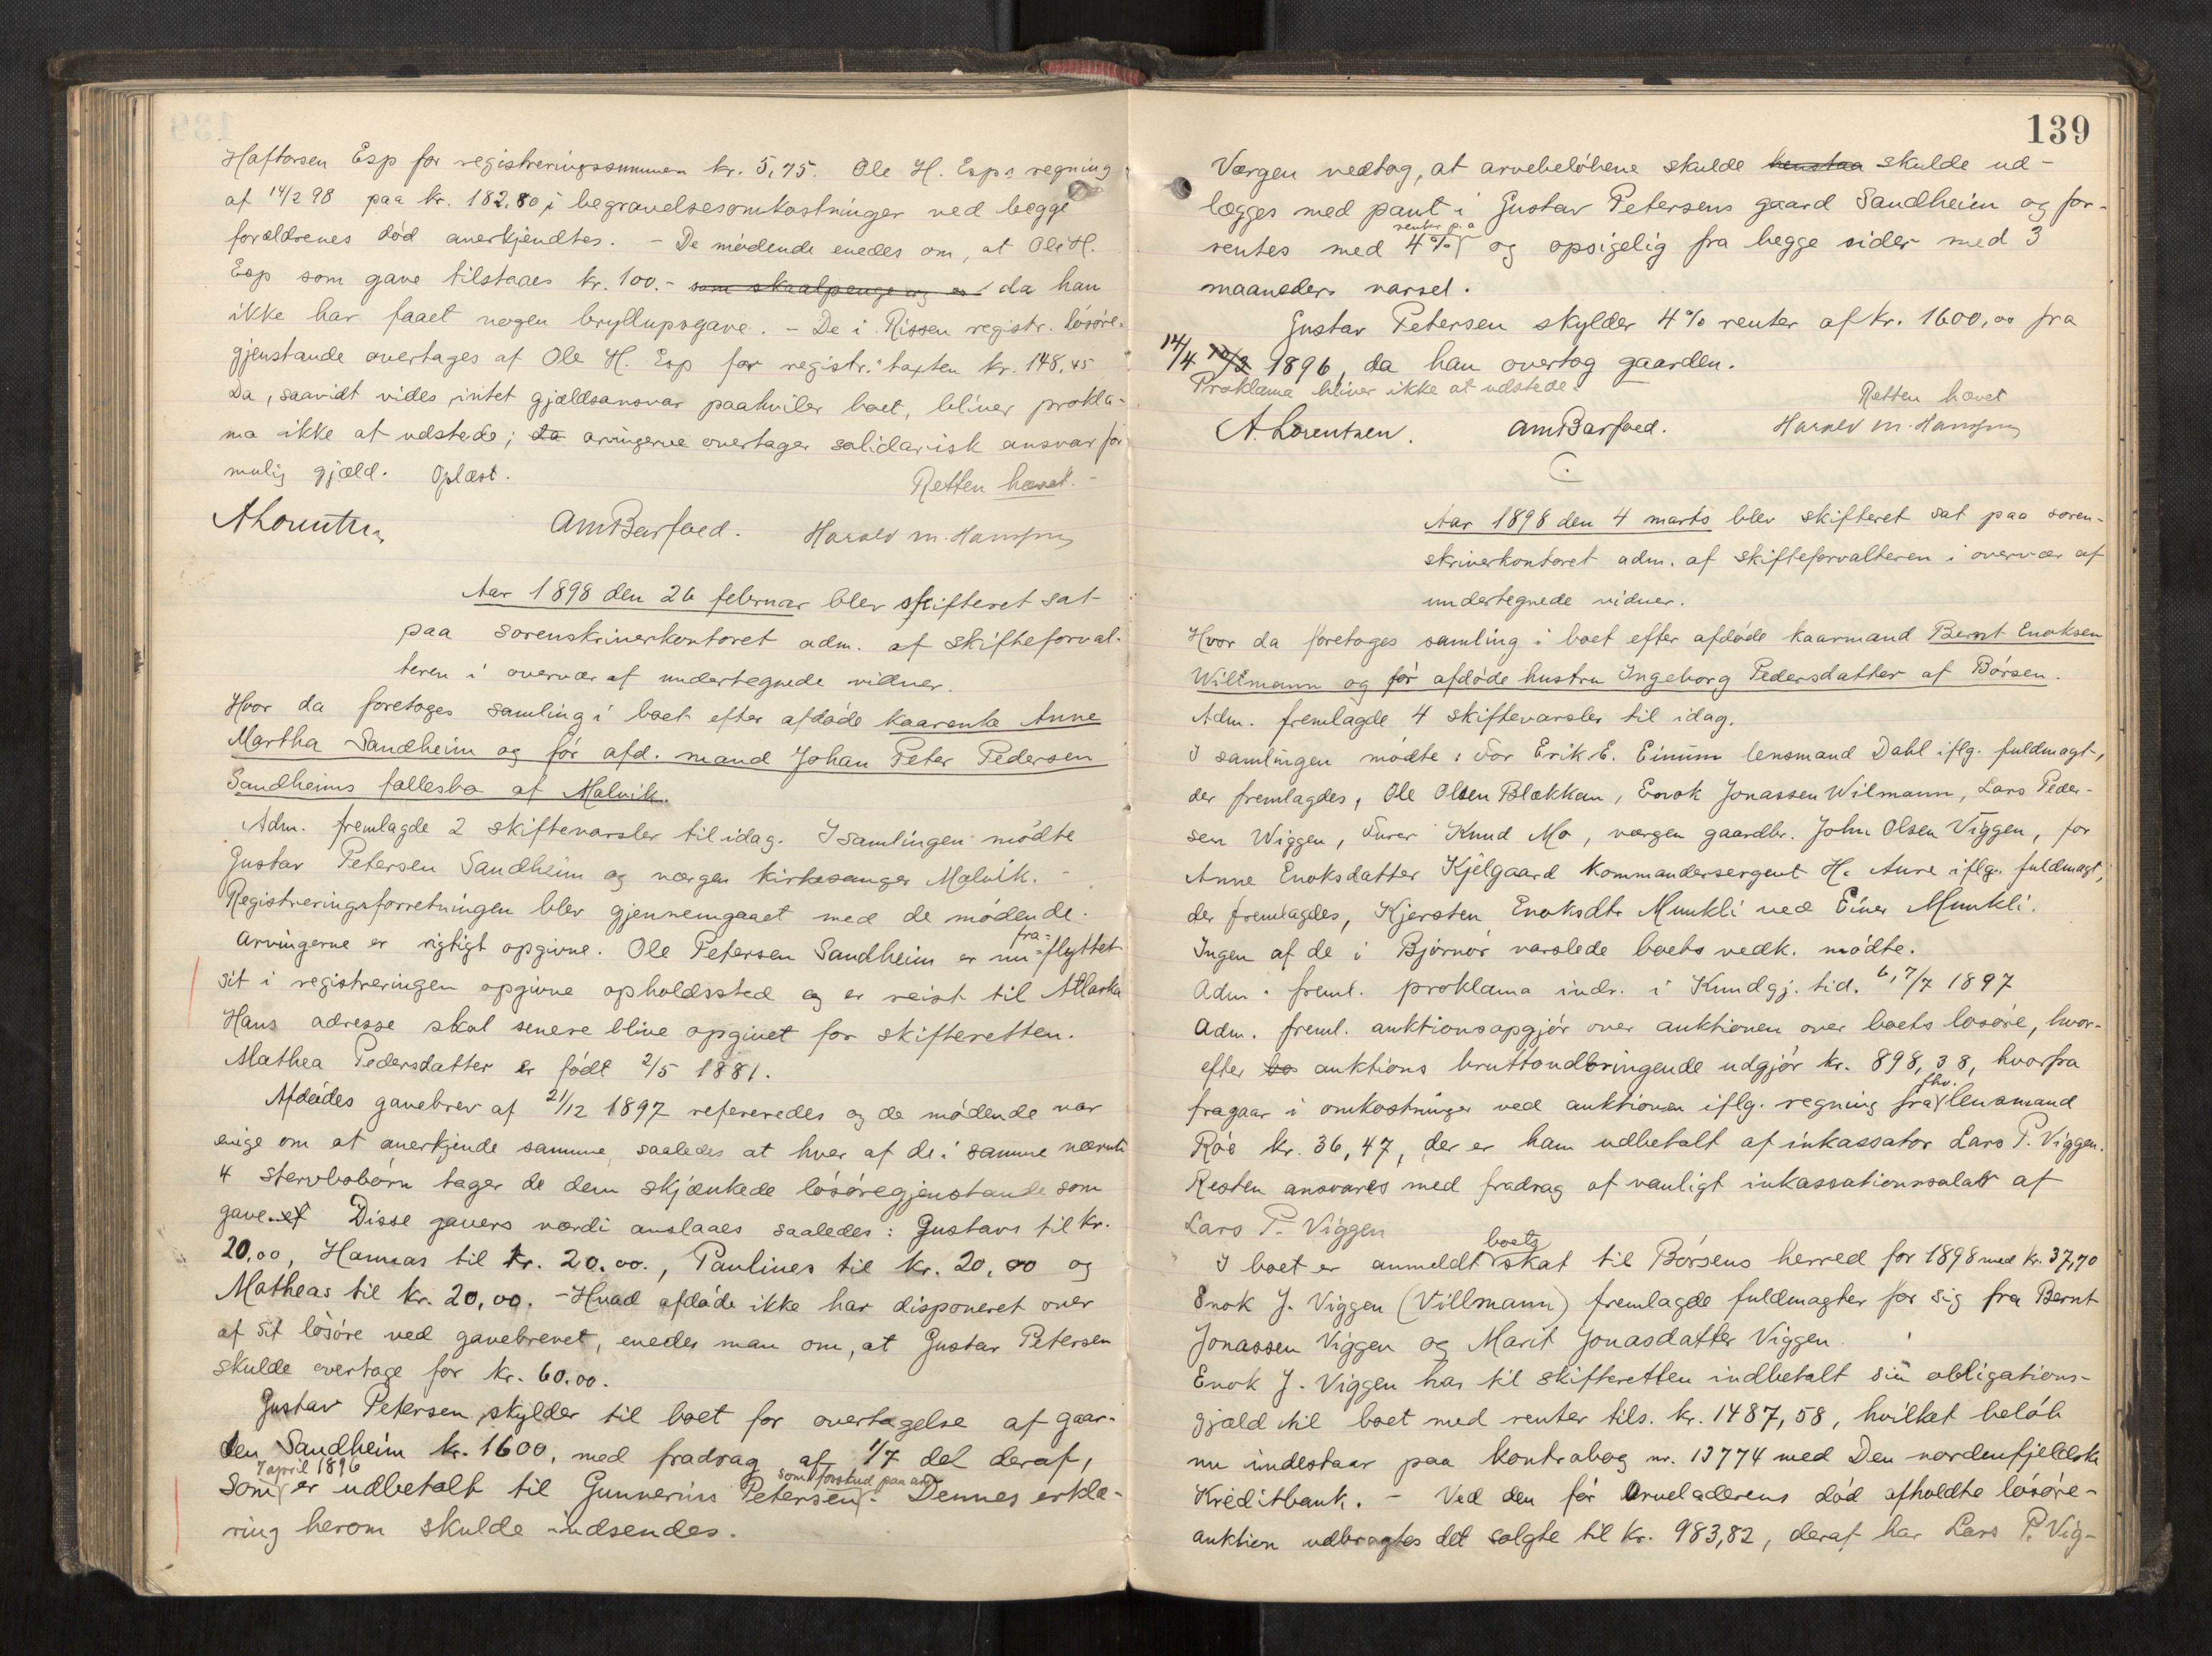 Haftorsen Esp for registreringssummen kr. 5,75. Ole H. Esps regning
af 14/2 98 paa kr. 182.80 i begravelsesomkostninger ved begge
forældrenes død anerkjendtes. - De mødende enedes om, at Ole H.
Esp som gave tilstaaes kr. 100.- som skaalpenge og es da han
ikke har faaet nogen bryllupsgave. - De i Rissen registr. løsøre-
gjenstande overtages af Ole H. Esp for registr. taxten kr. 148,45
Da, saavidt vides, intet gjældsansvar paahviler boet, bliver prokla-
ma ikke at udstede; da arvingerne overtager solidarisk ansvar for
mulig gjæld. Oplæst.
Retten hævet. -
A Lorentzen AmBarfoed. Harald M. Hansen
Aar 1898 den 26 februar blev skifteret sat
paa sorenskriverkontoret adm. af skifteforval-
teren i overvær af undertegnede vidner.
Hvor da foretoges samling i boet efter afdøde kaarenke Anne
Martha Sandheim og før afd. mand Johan Peter Pedersen
Sandheims fællesbo af Malvik.
Adm. fremlagde 2 skiftevarsler til idag. I samlingen mødte
Gustav Petersen Sandheim og værgen kirkesanger Malvik. -
Registreringsforretningen blev gjennemgaaet med de mødende.
Arvingerne er rigtigt opgivne. Ole Petersen Sandheim er nu fra-flyttet
sit i registreringen opgivne opholdssted og er reist til Atlaska
Hans adresse skal senere blive opgivet for skifteretten.
Mathea Pedersdatter er født 2/5 1881.
Afdødes gavebrev af 21/12 1897 refereredes og de mødende var
enige om at anerkjende samme, saaledes at hver af de i samme nævnte
4 stervbobørn tager de dem skjænkede løsøregjenstande som
gave. Disse gavers værdi anslaaes saaledes: Gustavs til kr.
20.00, Hannas til kr. 20.00., Paulines til kr. 20,00 og
Matheas til kr. 20,00. - Hvad afdøde ikke har disponeret over
af sit løsøre ved gavebrevet, enedes man om, at Gustav Petersen
skulde overtage for kr. 60.00.
Gustav Petersen skylder til boet for overtagelse af gaar-
den Sandheim kr. 1600, med fradrag af 1/7 del deraf,
7 april 1896 som forskud paa arv
som er udbetalt til Gunnerius Petersen. Dennes erklæ-
ring herom skulde indsendes.
139
Værgen vedtog, at arvebeløbene skulde henstaa skulde ud-
lægges med pant i Gustav Petersens gaard Sandheim og for-
renter p.a
rentes med 4% og opsigelig fra begge sider med 3
maaneders varsel.
Gustav Petersen skylder 4% renter af kr. 1600,00 fra
14/4 1896, da han overtog gaarden.
Proklama bliver ikke at udstede.
Retten hævet
A. Lorentzen. AmBarfoed. Harald M. Hansen
Aar 1898 den 4 marts blev skifteret sat paa soren-
skriverkontoret adm. af skifteforvalteren i overvær af
undertegnede vidner.
Hvor da foretoges samling i boet efter afdøde kaarmand Bernt Enoksen
Willmann og før afdøde hustru Ingeborg Pedersdatter af Børsen.
Adm. fremlagde 4 skiftevarsler til idag.
I samlingen mødte: For Erik E. Einum lensmand Dahl iflg. fuldmagt,
der fremlagdes, Ole Olsen Blekkan, Enok Jonassen Wilmann, Lars Peder-
sen Wiggen, Furer Knud Mo, værgen gaardbr. John Olsen Viggen, for
Anne Enoksdatter Kjelgaard kommandersergent H. Aune iflg. fuldmagt,
der fremlagdes, Kjersten Enoksdtr Munkli ved Einer Munkli.
Ingen af de i Bjørnør varslede boets vedk. mødte.
Adm. freml. proklama indr. i Kundgj. tid. 6,7/7 1897
Adm. freml. auktionsopgjør over auktionen over boets løsøre, hvor-
efter bo auktions bruttoudbringende udgjør kr. 898,38, hvorfra
fhv.
fragaar i omkostninger ved auktionen iflg. regning fra lensmand
Røe kr. 36,47, der er ham udbetalt af inkassator Lars P. Viggen.
Resten ansvares med fradrag af vanligt inkassationssalar af
Lars P. Viggen
boets
I boet er anmeldt skat til Børsens herred for 1898 med kr. 37,70
Enok J. Viggen (Villmann) fremlagde fuldmagter for sig fra Bernt
Jonassen Viggen og Marit Jonasdatter Viggen.
Enok J. Viggen har til skifteretten indbetalt sin obligations-
gjæld til boet med renter tils. kr. 1487,58, hvilket beløb
nu indestaar paa kontrabog nr. 13774 med Den nordenfjeldske
Kreditbank. - Ved den før arveladerens død afholdte løsøre-
auktion udbragtes det solgte til kr. 983,82, deraf har Lars P. Vig-